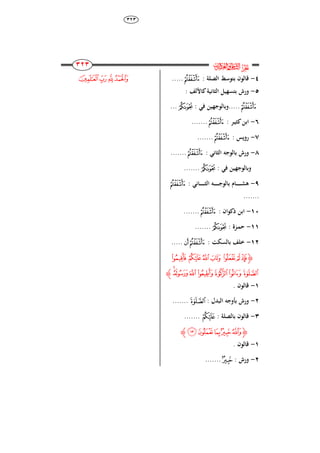 ٣٢٣
٣٢٣
وَالْحَمْدُ لِلَّهِ رَبِّ الْعَالَمِينَ
٤- قالون بتوسط الصلة : ءَأَشْفَقْتُمْ .....
٥- ورش بتسهيل الثانية كالألف :
ءَأَشْفَقْتُمْ .....وبالوجهين في : نَجْوَىٰكُمْ ...
٦- ابن كثير : ءَأَشْفَقْتُمْ .......
٧- رويس : ءَأَشْفَقْتُمْ .......
٨- ورش بالوجه الثاني : ءَأَشْفَقْتُمْ .......
وبالوجهين في : نَجْوَىٰكُمْ .......
٩- هشام بالوجه الثاني : ءَأَشْفَقْتُمْ
.......
١٠- ابن ذكوان : ءَأَشْفَقْتُمْ .......
١١- حمزة : نَجْوَىٰكُمْ .......
١٢- خلف بالسكت : ءَأَشْفَقْتُمْ أَن .....
﴿ فَإِذْ لَمْ تَفْعَلُوا۟ وَتَابَ ٱللَّهُ عَلَيْكُمْ فَأَقِيمُوا۟
ٱلصَّلَوٰةَ وَءَاتُوا۟ ٱلزَّكَوٰةَ وَأَطِيعُوا۟ ٱللَّهَ وَرَسُولَهُۥ ﴾
١- قالون .
٢- ورش بأوجه البدل : ٱلصَّلَوٰةَ .......
٣- قالون بالصلة : عَلَيْكُمْ .......
﴿ وَٱللَّهُ خَبِيرٌۢ بِمَا تَعْمَلُونَ ١٣ ﴾
١- قالون .
٢- ورش : خَبِيرٌۢ .......